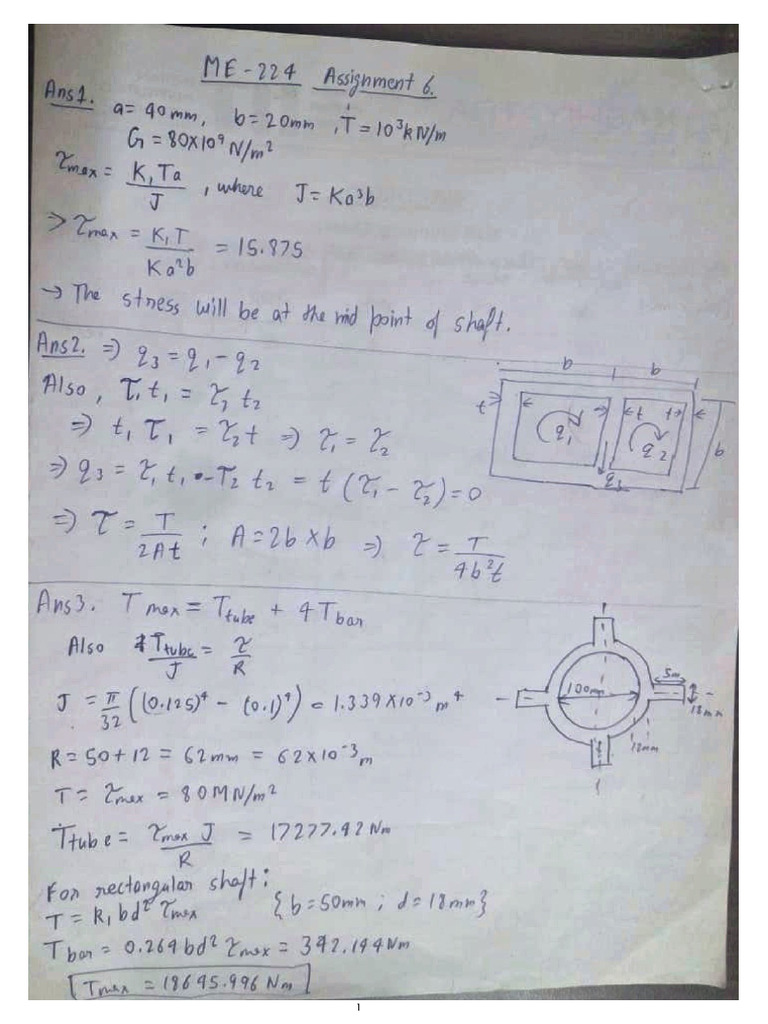 ME-224 Assignment 6.
Ans1. a = 40mm, b = 20mm, T = 10³kN/m
G = 80×10⁹N/m²
τmax = K₁Ta/J, where J = Ka³b
⇒ τmax = K₁T/Ka²b = 15.875
→ The stress will be at the mid point of shaft.
Ans2. ⇒ q₃ = q₁ - q₂
Also, τ₁t₁ = τ₂t₂
⇒ t₁τ₁ = τ₂t ⇒ τ₁ = τ₂
⇒ q₃ = τ₁t₁ - τ₂t₂ = t(τ₁ - τ₂) = 0
⇒ τ = T/2At ; A = 2b×b ⇒ τ = T/4b²t
b b
t t t
q₁ q₂ b
q₃
Ans3. Tmax = Ttube + 4Tbar
Also Ttube/J = τ/R
J = π/32 ((0.125)⁴ - (0.1)⁴) = 1.339×10⁻³ m⁴
R = 50+12 = 62mm = 62×10⁻³m
T = τmax = 80MN/m²
Ttube = τmax J/R = 17277.42Nm
For rectangular shaft:
T = K₁bd²τmax {b=50mm ; d=18mm}
Tbar = 0.264bd²τmax = 342.144Nm
Tmax = 18645.996Nm
100mm
5m
18mm
12mm
1